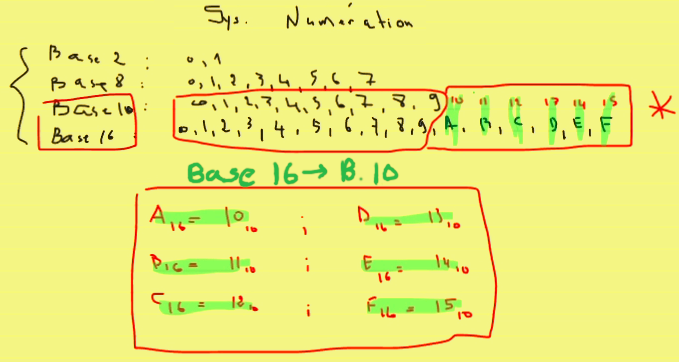 Sys. Numération
Base 2 : 0, 1
Base 8 : 0, 1, 2, 3, 4, 5, 6, 7
Base 10 : 0, 1, 2, 3, 4, 5, 6, 7, 8, 9 10 11 12 13 14 15 *
Base 16 : 0, 1, 2, 3, 4, 5, 6, 7, 8, 9, A, B, C, D, E, F
Base 16 → B.10
A₁₆ = 10₁₀ ; D₁₆ = 13₁₀
B₁₆ = 11₁₀ ; E₁₆ = 14₁₀
C₁₆ = 12₁₀ ; F₁₆ = 15₁₀